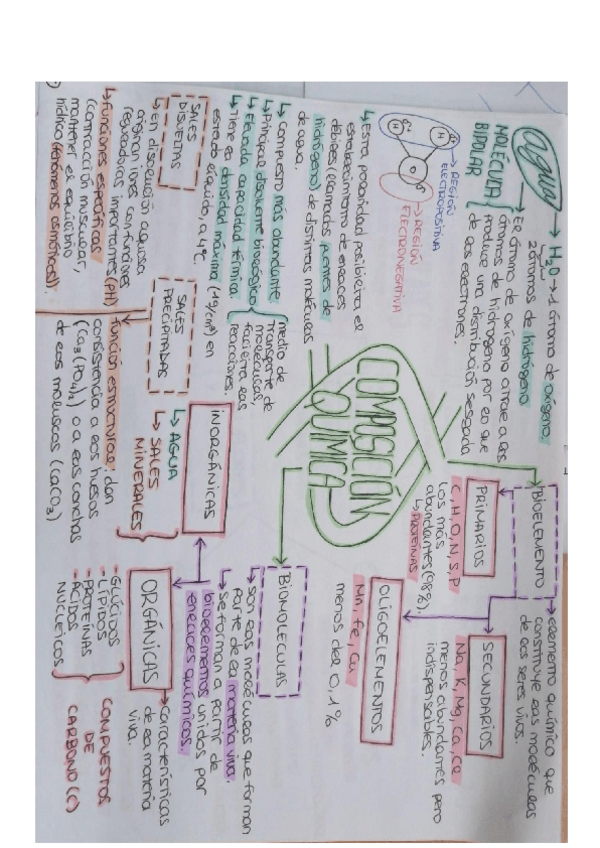 COMPOSICIÓN
QUÍMICA
BIOELEMENTO
→ elemento químico que
constituye las moléculas
de los seres vivos.
PRIMARIOS
C, H, O, N, S, P
los más
abundantes (98%).
↳ PROTEÍNAS
SECUNDARIOS
Na, K, Mg, Ca, Ce
menos abundantes pero
indispensables.
OLIGOELEMENTOS
Mn, Fe, Cu
menos del 0,1%
BIOMOLECULAS
↳ son las moléculas que forman
parte de la materia viva.
↳ Se forman a partir de
bioelementos unidos por
enlaces químicos.
ORGÁNICAS
→ características
de la materia
viva.
- GLÚCIDOS
- LÍPIDOS
- PROTEÍNAS
- ÁCIDOS
NUCLEICOS
COMPUESTOS
DE
CARBONO (C)
INORGÁNICAS
↳ AGUA
↳ SALES
MINERALES
agua
→ H₂O → 1 átomo de oxígeno
2 átomos de hidrógeno
MOLÉCULA
BIPOLAR
→ El átomo de oxígeno atrae a los
átomos de hidrógeno por lo que
produce una distribución sesgada
de los electrones.
H
H
O
→ REGIÓN
ELECTROPOSITIVA
→ REGIÓN
ELECTRONEGATIVA
↳ Esta polaridad posibilita el
establecimiento de enlaces
débiles (llamados puentes de
hidrógeno) de distintas moléculas
de agua.
↳ compuesto más abundante
↳ Principal disolvente biológico
↳ Elevada capacidad térmica.
medio de
transporte de
moléculas
facilita las
reacciones.
↳ Tiene la densidad máxima (1g/cm³) en
estado líquido, a 4ºC.
SALES
DISUELTAS
↳ En disolución acuosa
originan iones con funciones
reguladoras importantes (PH)
↳ funciones específicas
(contracción muscular,
mantener el equilibrio
hídrico (fenómenos osmóticos)).
SALES
PRECIPITADAS
función estructural: dan
consistencia a los huesos
(Ca₃(PO₄)₂) o a las conchas
de los moluscos (CaCO₃)